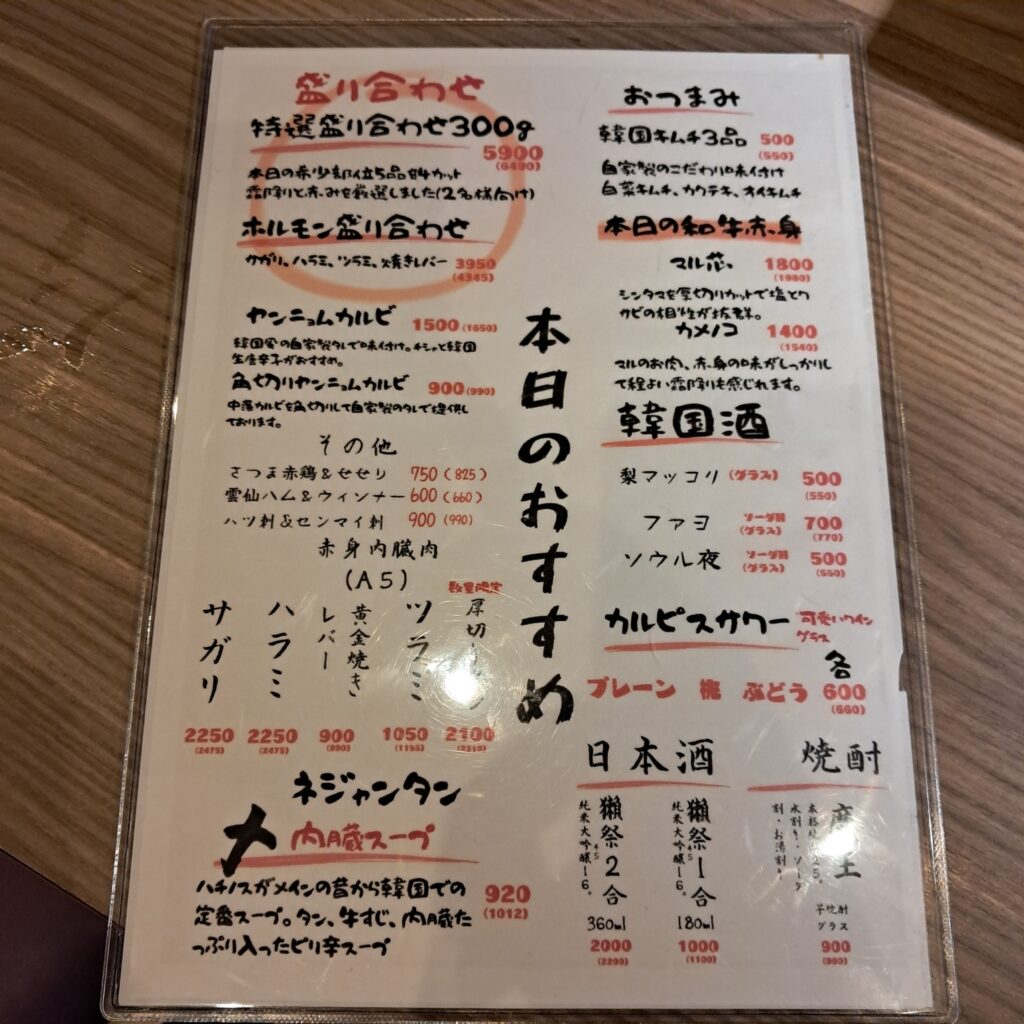 盛り合わせ
特選盛り合わせ300g
5900
(6490)
本日の希少部位5品を4カット
霜降りと赤みを厳選しました(2名様向け)
ホルモン盛り合わせ
サガリ、ハラミ、ツラミ、焼きレバー 3950
(4345)
ヤンニョムカルビ 1500(1650)
韓国風の自家製タレで味付け。チシャと韓国
生唐辛子がおすすめ。
角切りヤンニョムカルビ 900(990)
中落カルビを角切りして自家製のタレで提供し
ております。
その他
さつま赤鶏&せせり 750(825)
雲仙ハム&ウィンナー600(660)
ハツ刺&センマイ刺 900(990)
赤身内臓肉
(A5)
サガリ
2250
(2475)
ハラミ
2250
(2475)
黄金焼き
レバー
900
(990)
ツラミ
1050
(1155)
数量限定
厚切り
2100
(2310)
ネジャンタン
内臓スープ
ハチノスがメインの昔から韓国での
定番スープ。タン、牛すじ、内臓た
っぷり入ったピリ辛スープ
920
(1012)
本日のおすすめ
おつまみ
韓国キムチ3品 500
(550)
自家製のこだわり味付け
白菜キムチ、カクテキ、オイキムチ
本日の和牛赤身
マル芯 1800
(1980)
シンタマを厚切りカットで塩とワ
サビの相性が抜群。
カメノコ 1400
(1540)
マルのお肉、赤身の味がしっかりし
て程よい霜降りも感じれます。
韓国酒
梨マッコリ(グラス) 500
(550)
ファヨ ソーダ割(グラス) 700
(770)
ソウル夜 ソーダ割(グラス) 500
(550)
カルピスサワー 可愛いワイン
グラス
各
プレーン 桃 ぶどう 600
(660)
日本酒
獺祭2合
45
純米大吟醸16°
360ml
2000
(2200)
獺祭1合
45
純米大吟醸16°
180ml
1000
(1100)
焼酎
水割り・ソーダ
割・お湯割り
芋焼酎
グラス
900
(990)